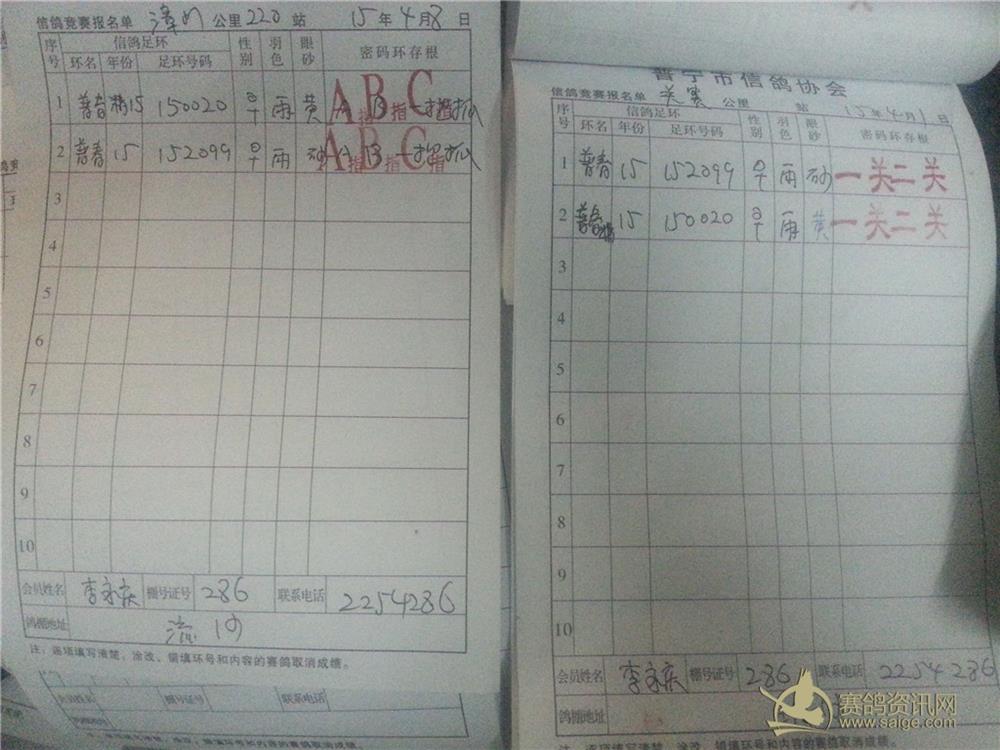 信鸽竞赛报名单 漳州 公里 220 站 15年4月8日
序号 信鸽足环 性别 羽色 眼砂 密码环存根
环名 年份 足环号码
1 普春 15 150020 雨 黄 ABC 指
2 普春 15 152099 雨 砂 ABC 指
3
4
5
6
7
8
9
10
会员姓名 李家庆 棚号证号 286 联系电话 2254286
鸽棚地址 流沙
注：逐项填写清楚，涂改、错填环号和内容的赛鸽取消成绩。
普宁市信鸽协会
信鸽竞赛报名单 关赛 公里 站 15年4月 日
序号 信鸽足环 性别 羽色 眼砂 密码环存根
环名 年份 足环号码
1 普春 15 152099 雨 砂 一关二关
2 普春 15 150020 雨 黄 一关二关
3
4
5
6
7
8
9
10
会员姓名 李家庆 棚号证号 286 联系电话 2254286
鸽棚地址
赛鸽资讯网
www.saige.com